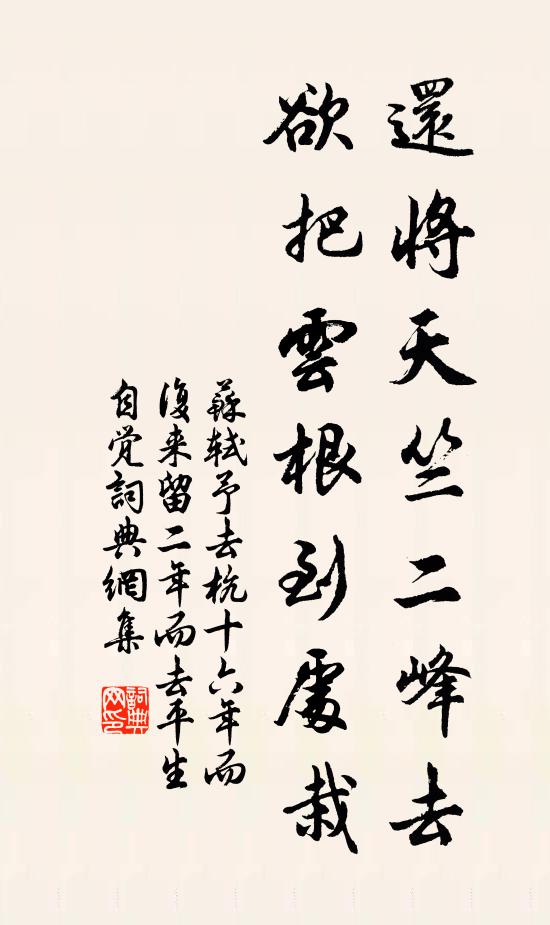 還將天竺二峰去
欲把雲根到處栽
蘇軾予去杭十六年而
復来留二年而去平生
自觉詞典網集
詞典网印